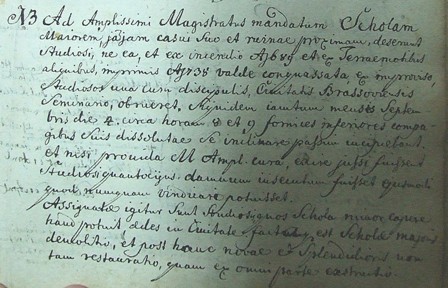 NB Ad Amplissimi Magistratus mandatum Scholam
Maiorem, jamjam casui suo et ruinae proximam, deserunt
Studiosi, ne ea, et ex incendio A 1689 et ex Terraemotibus
aliquibus, nimis A 1738 valde conquassata, ex improviso,
Studiosos una cum discipulis, Civitatis Brassoviensis
Seminario, obrueret, siquidem tantum mensis Septem
bris die 4. circa horam 8 et 9 fornices inferiores compa
gibus suis dissolutae se inclinare passim incipiebant,
et nisi provida M Ampl. cura, exire jussi fuissent
Studiosi quantocijus, damnum insecutum fuisset ejusmodi
quod nunquam vindicare potuisset.
Assignatae igitur sunt Studiosis, quos Schola minor capere
haud potuit aedes in Civitate facta est Scholae majoris
demolitio, et post hanc novae et splendidioris non
tam restauratio, quam ex omni parte exstructio.